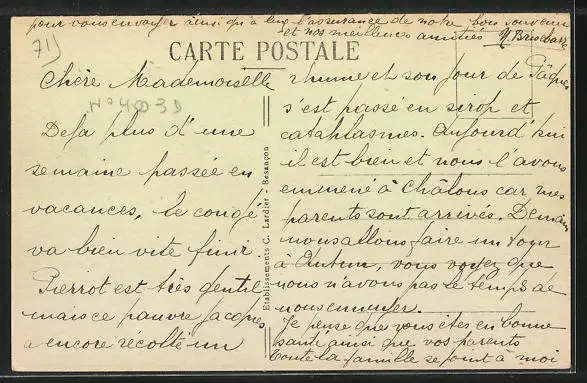 pour vous envoyer ainsi qu'à eux l'assurance de notre bon souvenir
et nos meilleures amitiés M Brisebarre
71)
CARTE POSTALE
Chère Mademoiselle
N° 4003D
Déja plus d'une
semaine passée en
vacances, le congé
va bien vite finir
Pierrot est très gentil
mais ce pauvre Jacques
a encore récolté un
Etablissements C. Lardier - Besançon
rhume et son jour de Pâques
s'est passé en sirop et
cataplasmes. Aujourd'hui
il est bien et nous l'avons
emmené à Châlons car mes
parents sont arrivés. Demain
nous allons faire un tour
à Autun, vous voyez que
nous n'avons pas le temps de
nous ennuyer.
Je pense que vous êtes en bonne
santé ainsi que vos parents
toute la famille se joint à moi